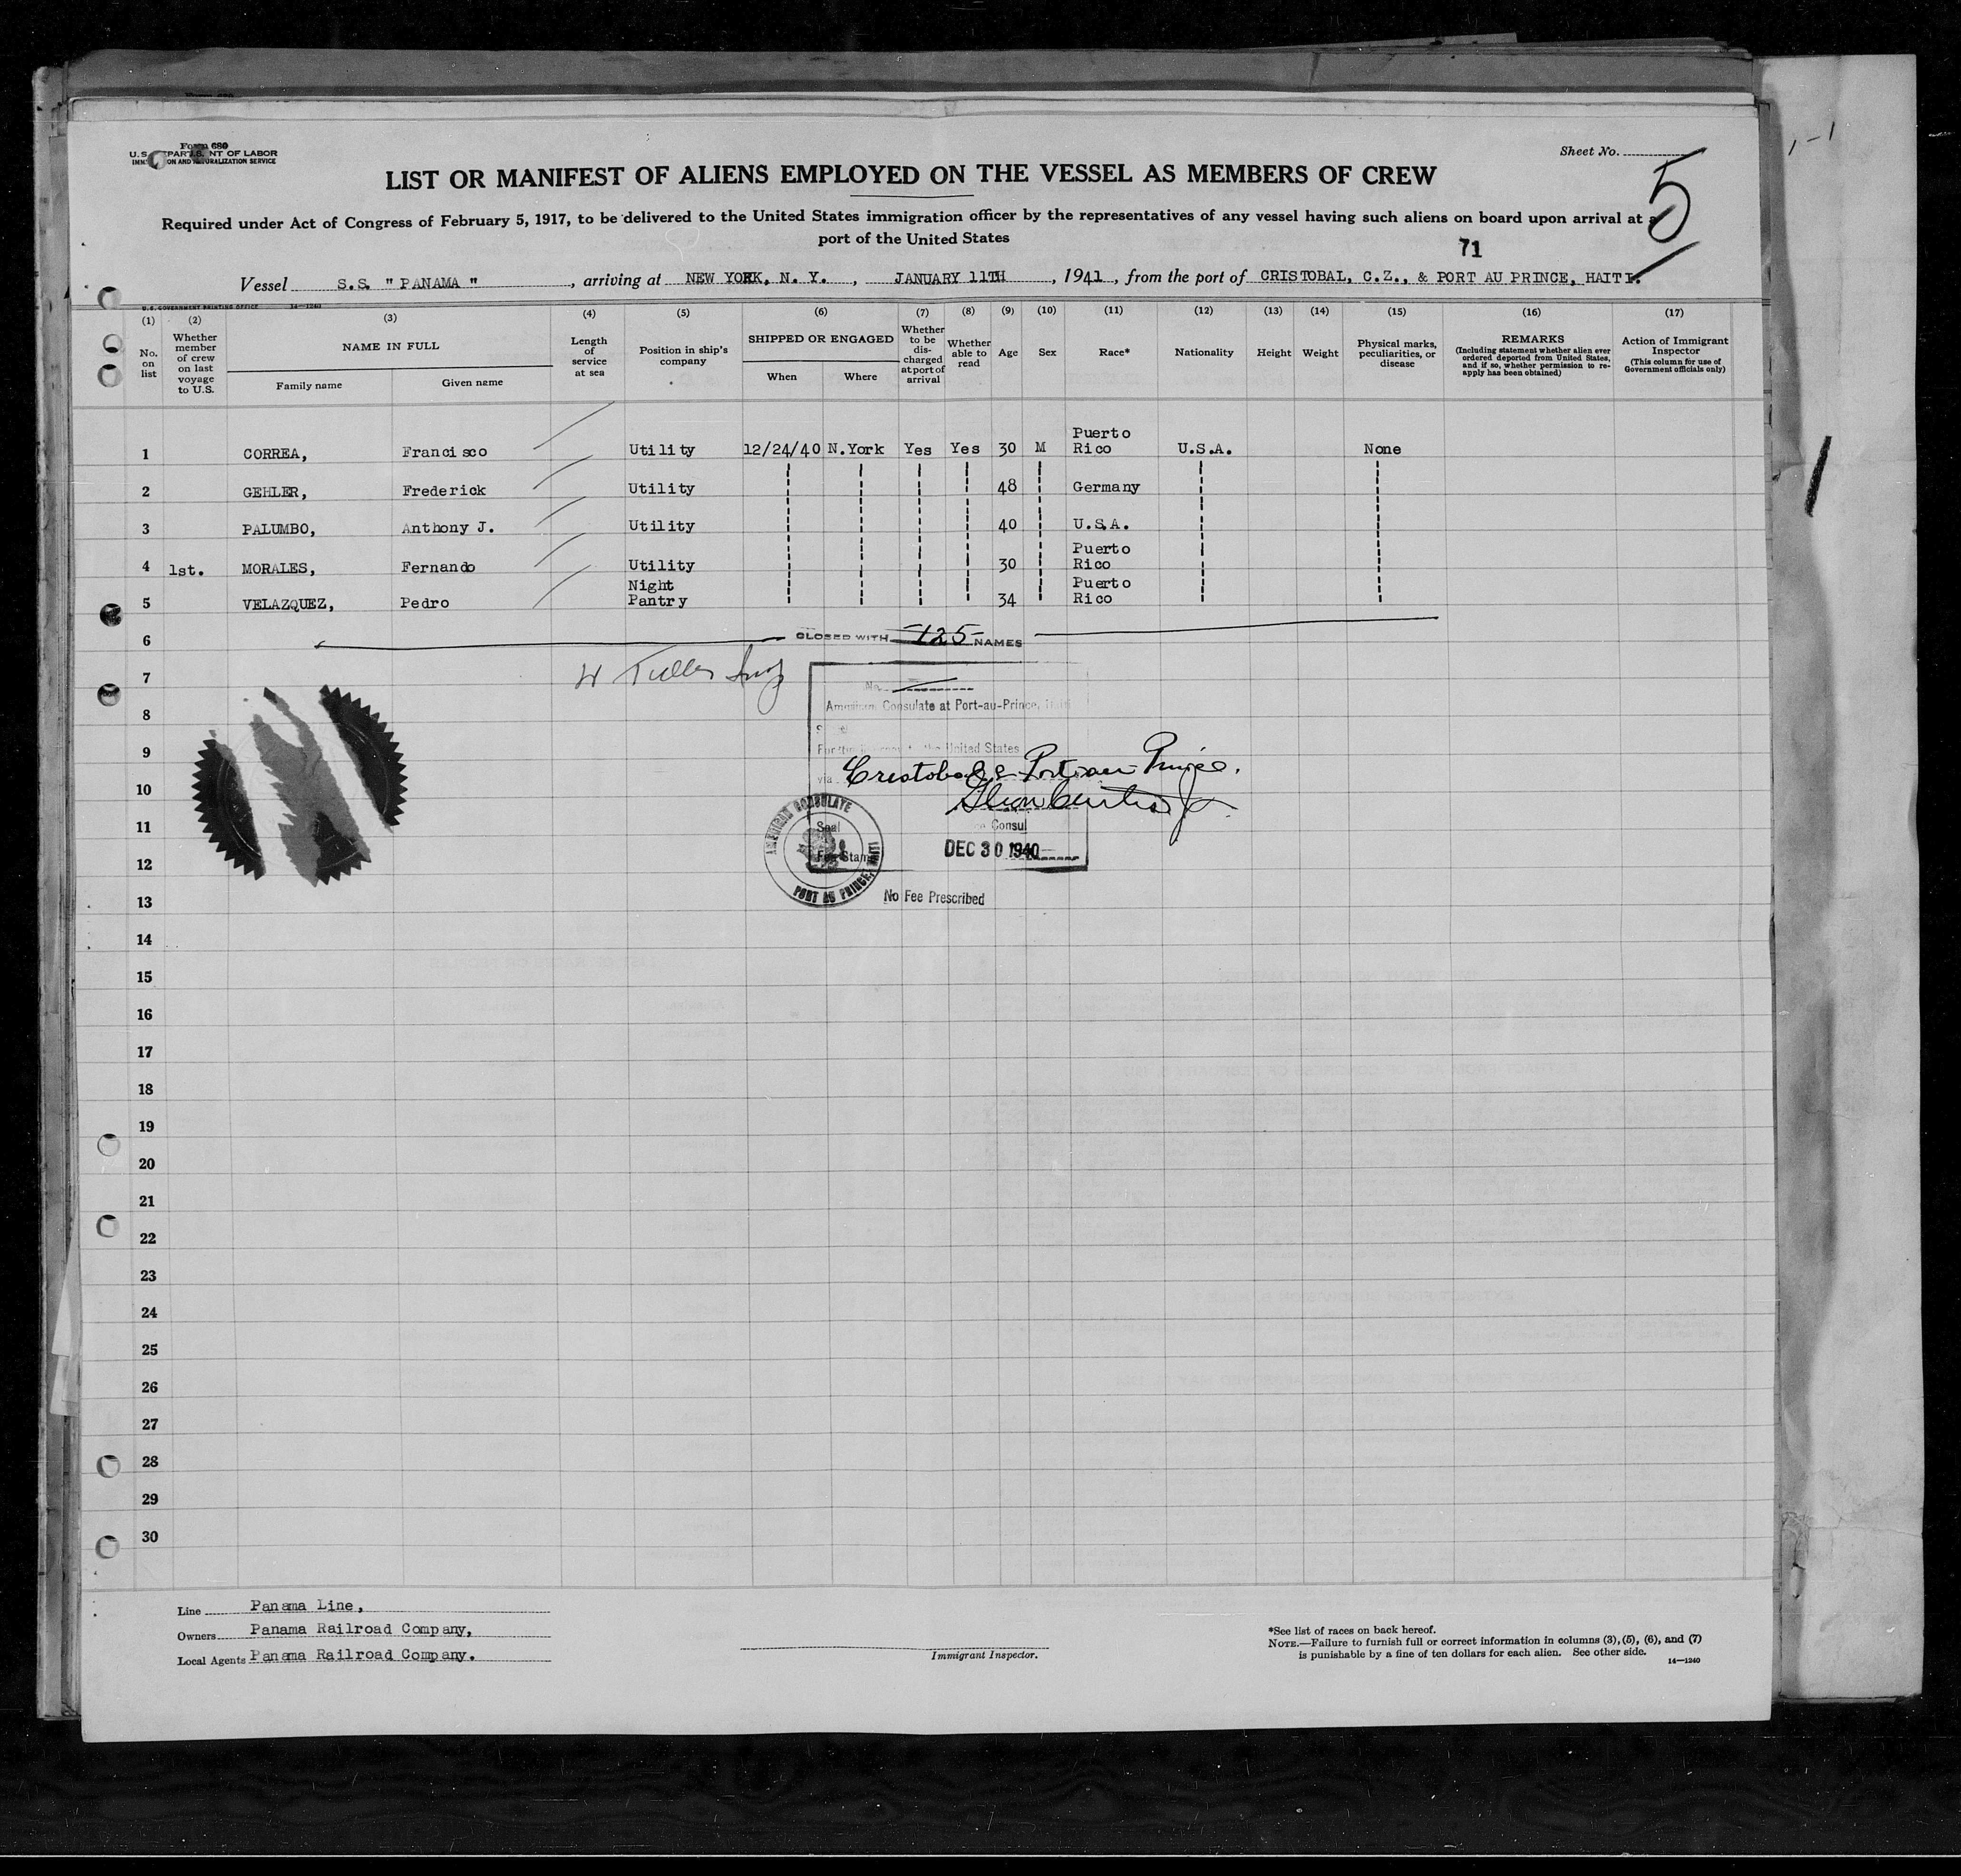 Form 680
U.S. DEPARTMENT OF LABOR
IMMIGRATION AND NATURALIZATION SERVICE
Sheet No.
5
LIST OR MANIFEST OF ALIENS EMPLOYED ON THE VESSEL AS MEMBERS OF CREW
Required under Act of Congress of February 5, 1917, to be delivered to the United States immigration officer by the representatives of any vessel having such aliens on board upon arrival at a
port of the United States
71
Vessel S.S. " PANAMA " , arriving at NEW YORK, N. Y. , JANUARY 11TH , 1941 , from the port of CRISTOBAL, C.Z., & PORT AU PRINCE, HAITI.
U.S. GOVERNMENT PRINTING OFFICE 14—1240
(1) (2) (3) (4) (5) (6) (7) (8) (9) (10) (11) (12) (13) (14) (15) (16) (17)
No. on list
Whether member of crew on last voyage to U.S.
NAME IN FULL
Family name Given name
Length of service at sea
Position in ship's company
SHIPPED OR ENGAGED
When Where
Whether to be discharged at port of arrival
Whether able to read
Age Sex Race* Nationality Height Weight
Physical marks, peculiarities, or disease
REMARKS
(Including statement whether alien ever ordered deported from United States, and if so, whether permission to re-apply has been obtained)
Action of Immigrant Inspector
(This column for use of Government officials only)
1 CORREA, Francisco Utility 12/24/40 N.York Yes Yes 30 M Puerto Rico U.S.A. None
2 GEHLER, Frederick Utility 48 Germany
3 PALUMBO, Anthony J. Utility 40 U.S.A.
4 1st. MORALES, Fernando Utility 30 Puerto Rico
5 VELAZQUEZ, Pedro Night Pantry 34 Puerto Rico
6 CLOSED WITH -125- NAMES
7
No.
8 American Consulate at Port-au-Prince, Haiti
9 United States
via Cristobal & Port-au-Prince.
10
11 Seal Consul
12 Fee Stamp DEC 30 1940
AMERICAN CONSULATE
PORT AU PRINCE, HAITI
13 No Fee Prescribed
14
15
16
17
18
19
20
21
22
23
24
25
26
27
28
29
30
Line Panama Line,
Owners Panama Railroad Company,
Local Agents Panama Railroad Company.
Immigrant Inspector.
*See list of races on back hereof.
NOTE.—Failure to furnish full or correct information in columns (3), (5), (6), and (7)
is punishable by a fine of ten dollars for each alien. See other side.
14—1240